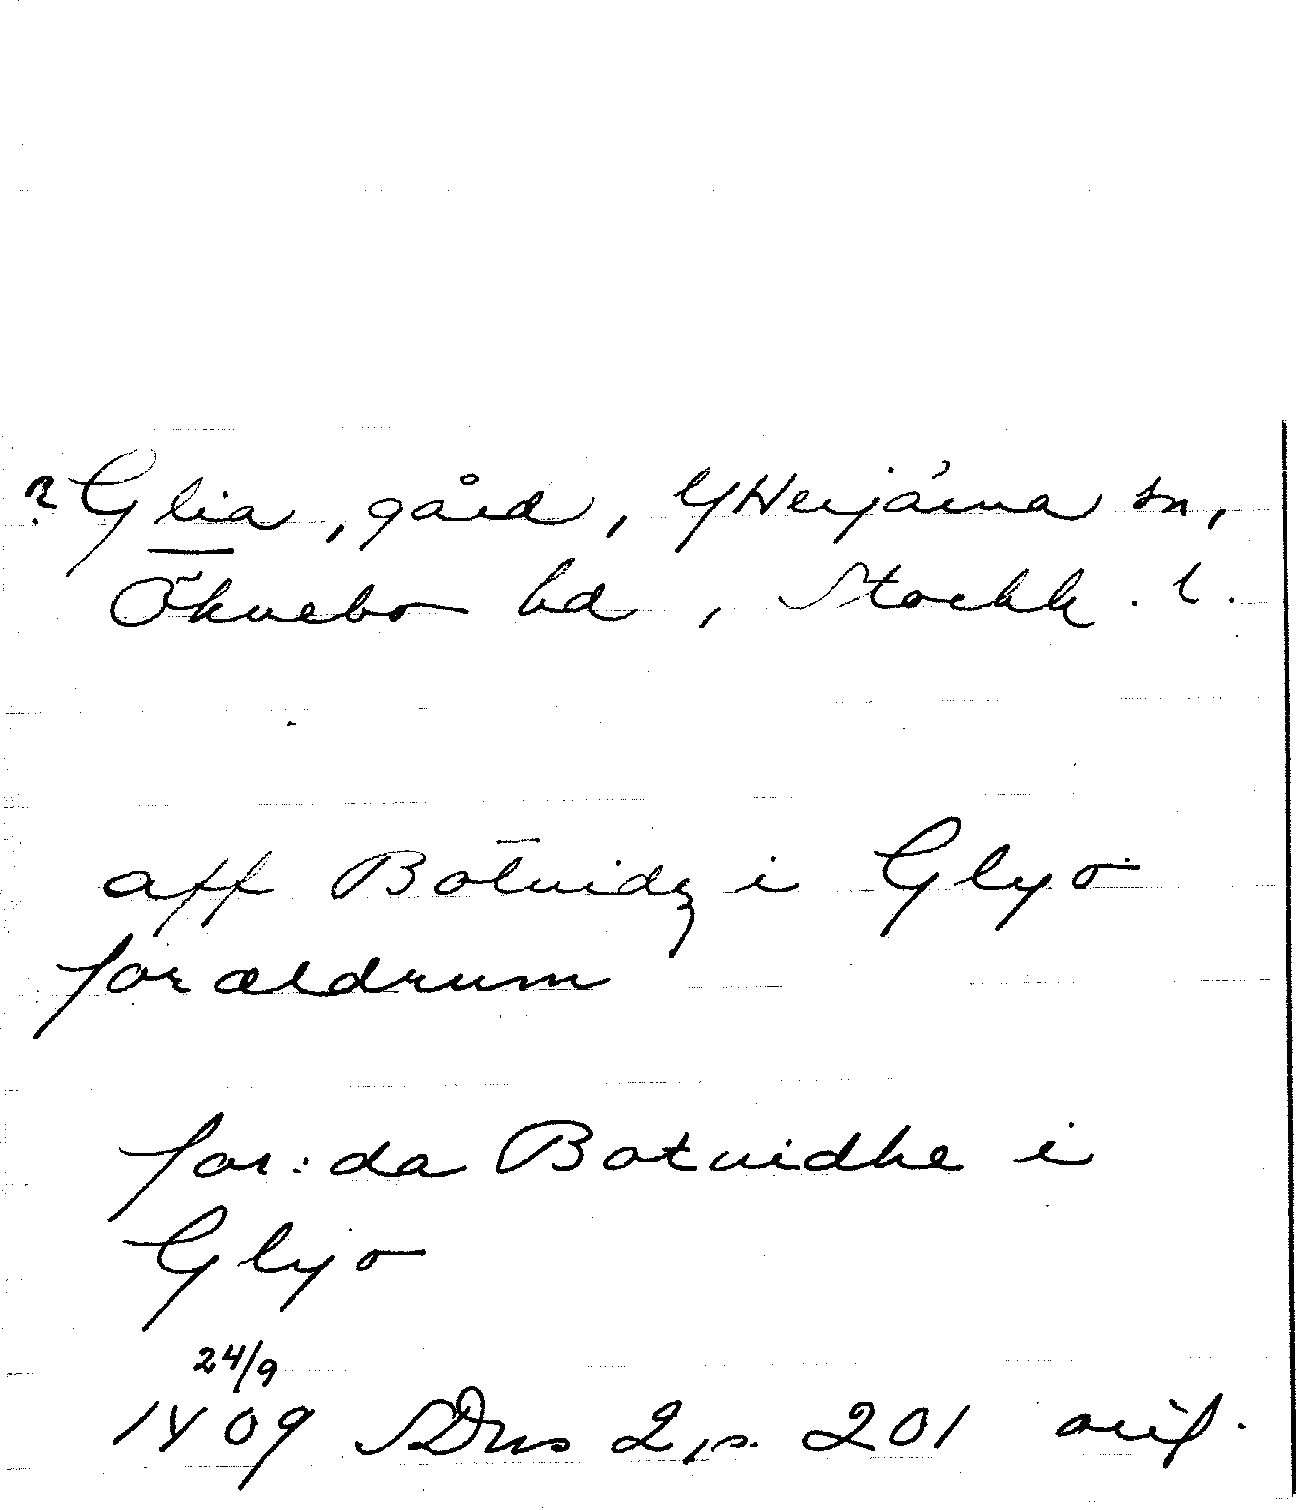 ? Glia, gård, Ytterjärna sn,
Öknebo hd, Stockh. l.
aff Botuidz i Glyo
foræeldrum
for:da Botuidhe i
Glyo
24/9
1409 SDns 2, s. 201 orig.